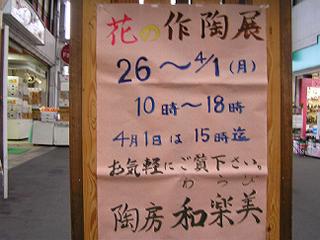 花の作陶展
26～4/1(月)
10時～18時
4月1日は 15時迄
お気軽にご覧下さい。
わらび
陶房 和楽美